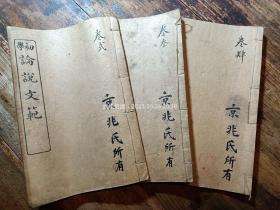 初學論說文範
卷弍
京兆氏所有
卷叁
京兆氏所有
卷肆
京兆氏所有